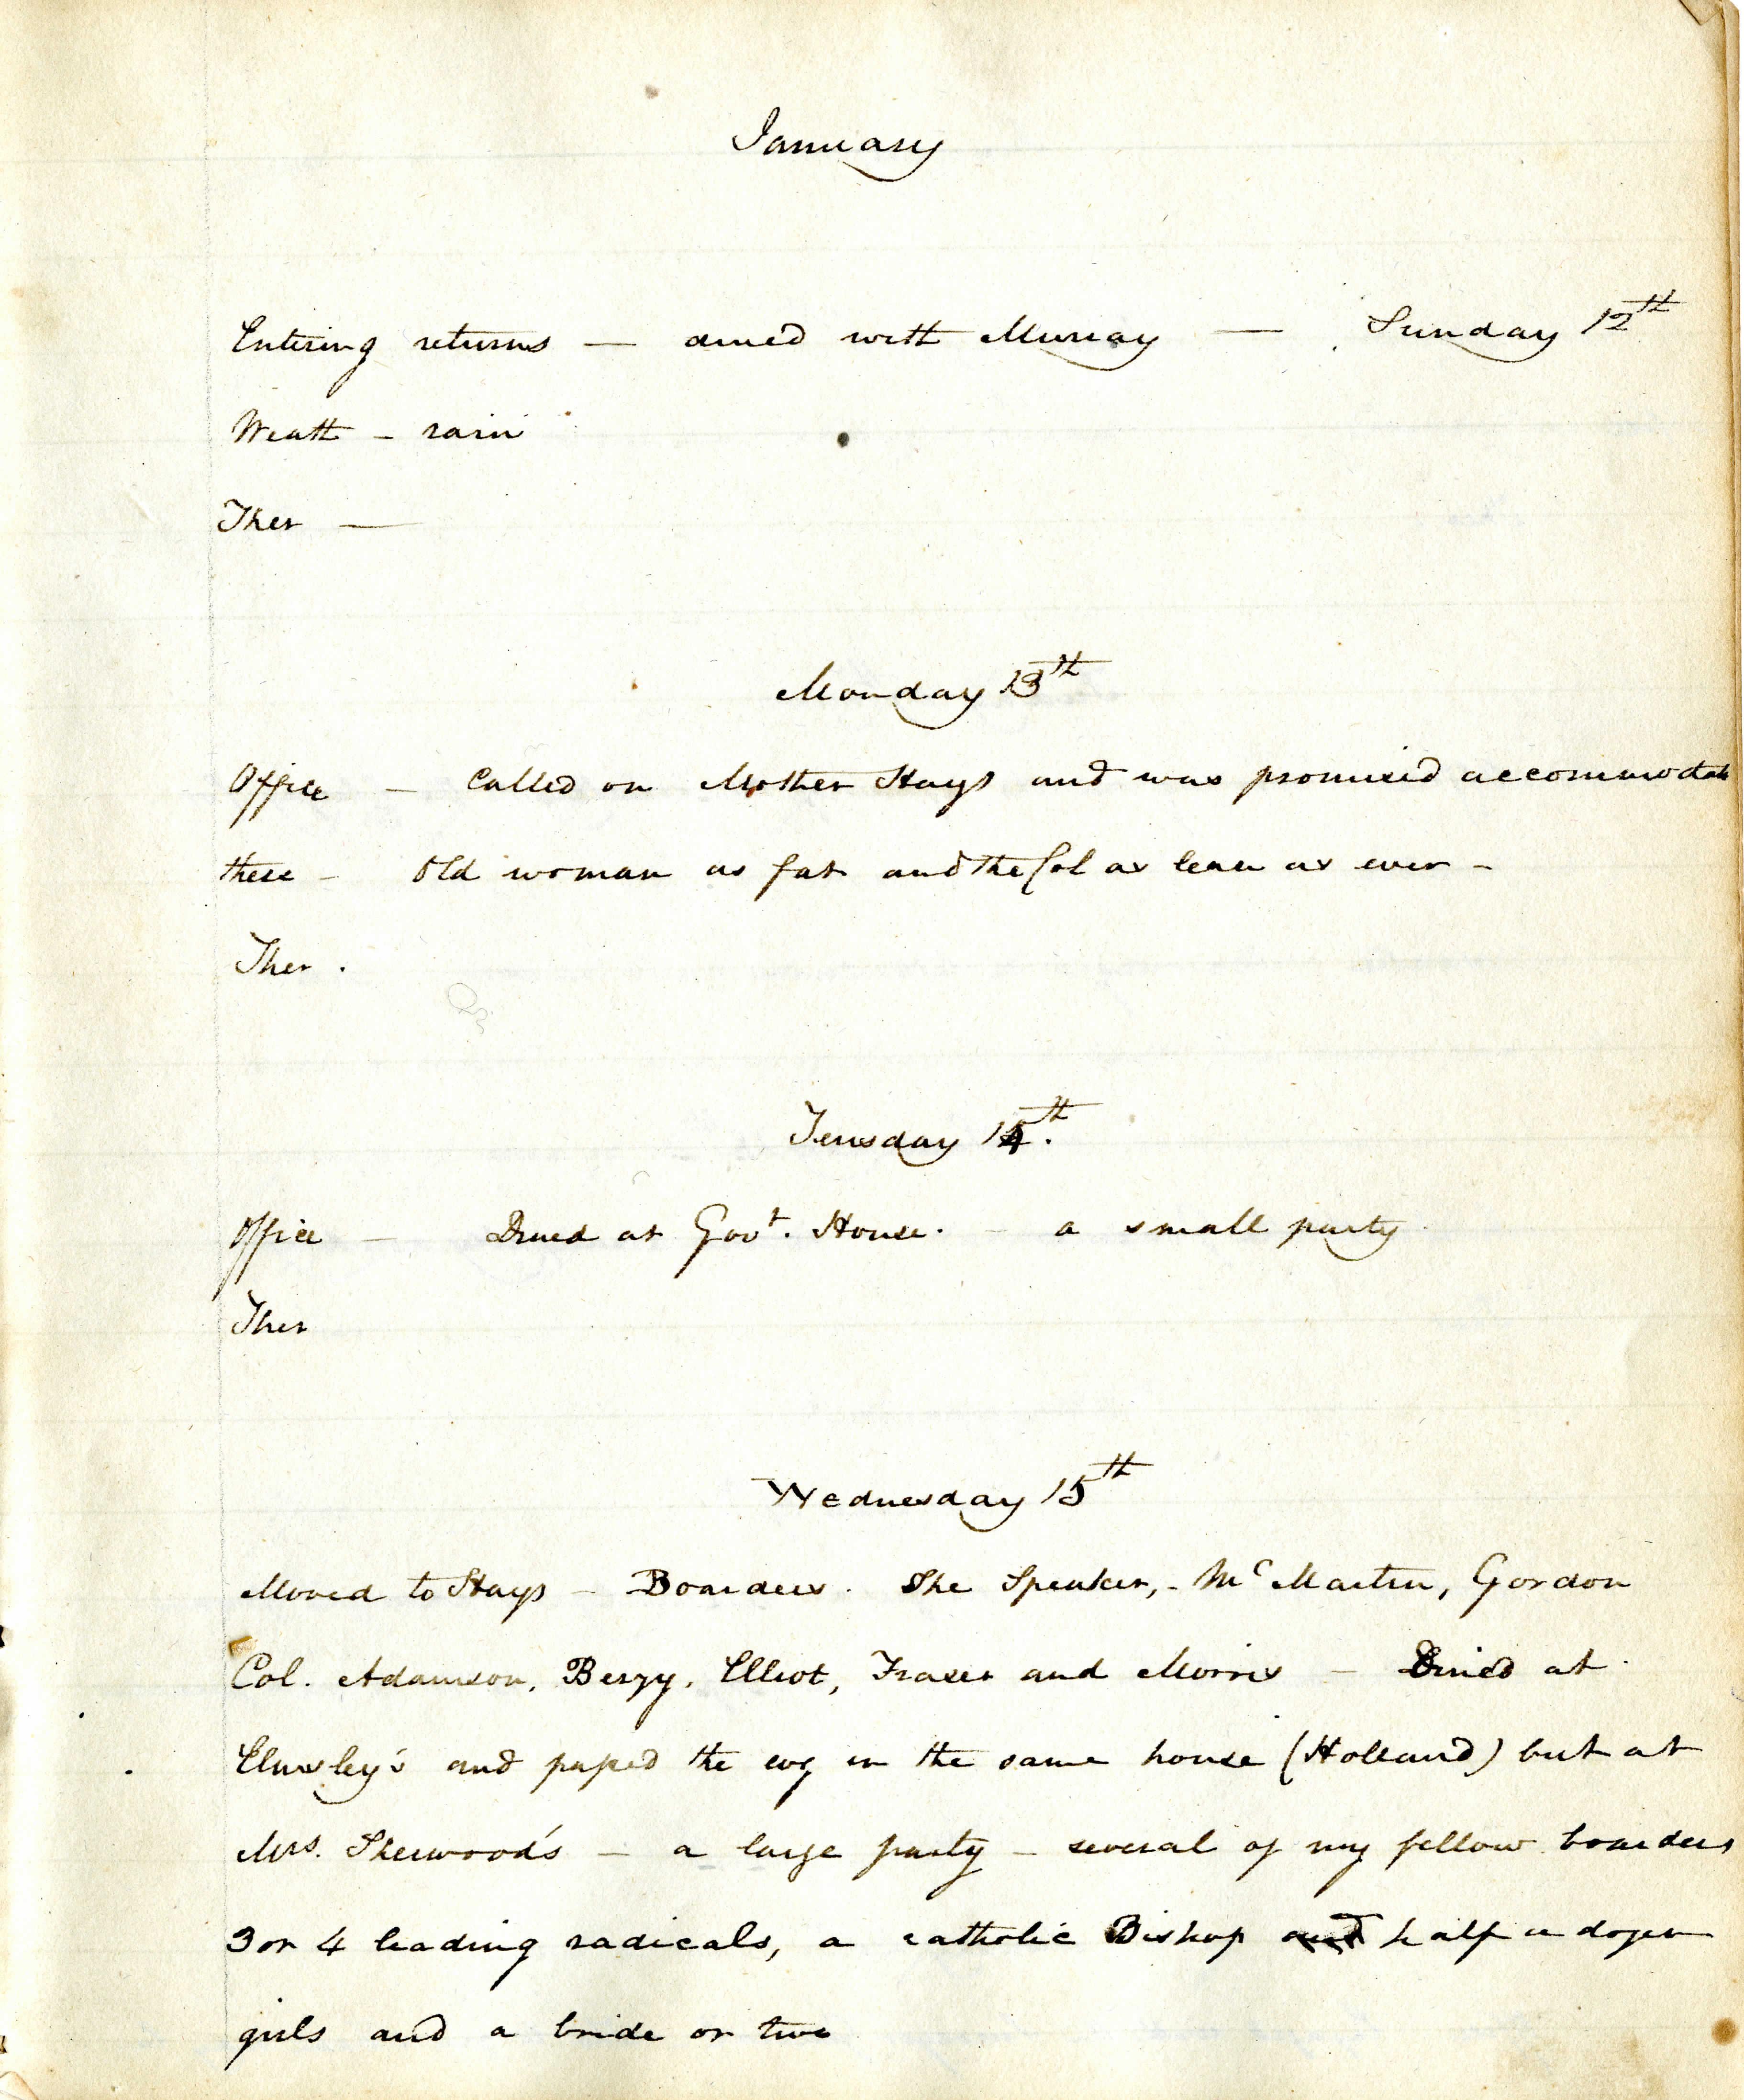 January
Entering returns — dined with Murray — Sunday 12th
Weath - rain
Ther —
Monday 13th
Office - Called on Mother Hays and was promised accommodat
there - Old woman as fat and the Col as lean as ever -
Ther .
Teusday 14th.
Office - Dined at Govt. House. - a small party
Ther
Wednesday 15th
Moved to Hays - Boarders. The Speaker, - McMartin, Gordon
Col. Adamson, Berzy, Elliot, Fraser and Morris - Dined at
Elmsley's and passed the evg in the same house (Holland) but at
Mrs. Sherwood's - a large party - several of my fellow boarders
3 or 4 leading radicals, a catholic Bishop and half a dozen
girls and a bride or two